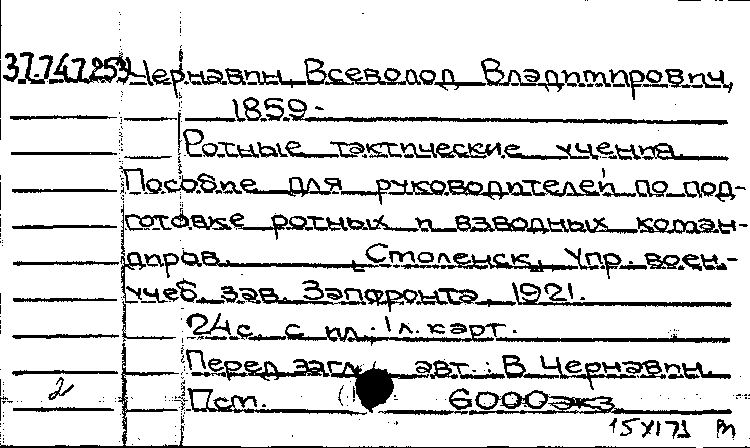 37.747.259 Чернавин, Всеволод Владимирович,
1859-
Ротные тактические учения
Пособие для руководителей по под-
готовке ротных и взводных коман-
диров. [Смоленск], Упр. воен.-
учеб. зав. Запфронта, 1921.
24 с. с пл.; 1 л. карт.
Перед загл. авт.: В. Чернавин.
2
Пст. 6000 экз
15 XI 73